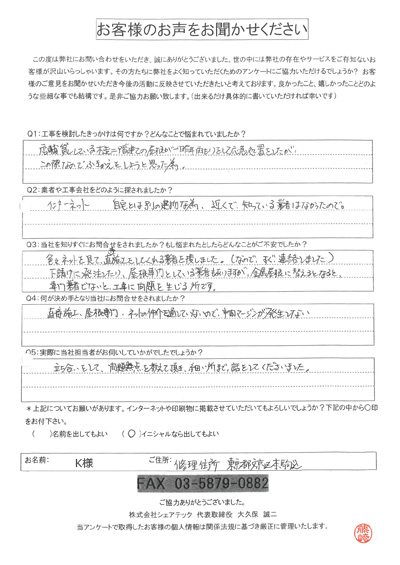 お客様のお声をお聞かせください
この度は弊社にお問い合わせをいただき、誠にありがとうございました。世の中には弊社の存在やサービスをご存知ないお
客様が沢山いらっしゃいます。その方たちに弊社をよく知っていただくためのアンケートにご協力いただけるでしょうか？ お客
様のご意見をお聞かせいただき今後の活動に反映させていただきたいと考えております。良かったこと、嬉しかったことどのよ
うな些細な事でも結構です。是非ご協力お願い致します。（出来るだけ具体的に書いていただければ幸いです）
Q1：工事を検討したきっかけは何ですか？どんなことで悩まれていましたか？
この際なのでふきかえをしようと思った為。
Q2：業者や工事会社をどのように探されましたか？
インターネット 自宅とは別の 為、近くで、知っている業者はなかったので。
Q3：当社を知りすぐにお問合せをされましたか？もし悩まれたとしたらどんなことがご不安でしたか？
色々ネットを見て、直施工としてくれる業者を探しました。（なので、すぐ連絡しました）
下請けに発注したり、屋根専門としている業者もありますが、金属屋根に替えるとなると、
専門業者でないと、工事に問題を生じる所です。
Q4：何が決め手となり当社にお問合せをされましたか？
直施工、屋根専門、ネットの仲介を通していないので、中間マージンが発生しない
Q5：実際に当社担当者がお伺いしていかがでしたでしょうか？
立ち合いをして、問題点を教えて頂き、細い所まで、話をしてくださいました。
＊上記についてお願いがあります。インターネットや印刷物に掲載させていただいてもよろしいでしょうか？下記の中から〇印
をお付下さい。
（ ）名前を出してもよい （〇）イニシャルなら出してもよい
お名前： K様 ご住所： 修理住所 東京都
FAX 03-5879-0882
ご協力ありがとうございました。
株式会社シェアテック 代表取締役 大久保 誠二
当アンケートで取得したお客様の個人情報は関係法規に基づき厳正に管理いたします。